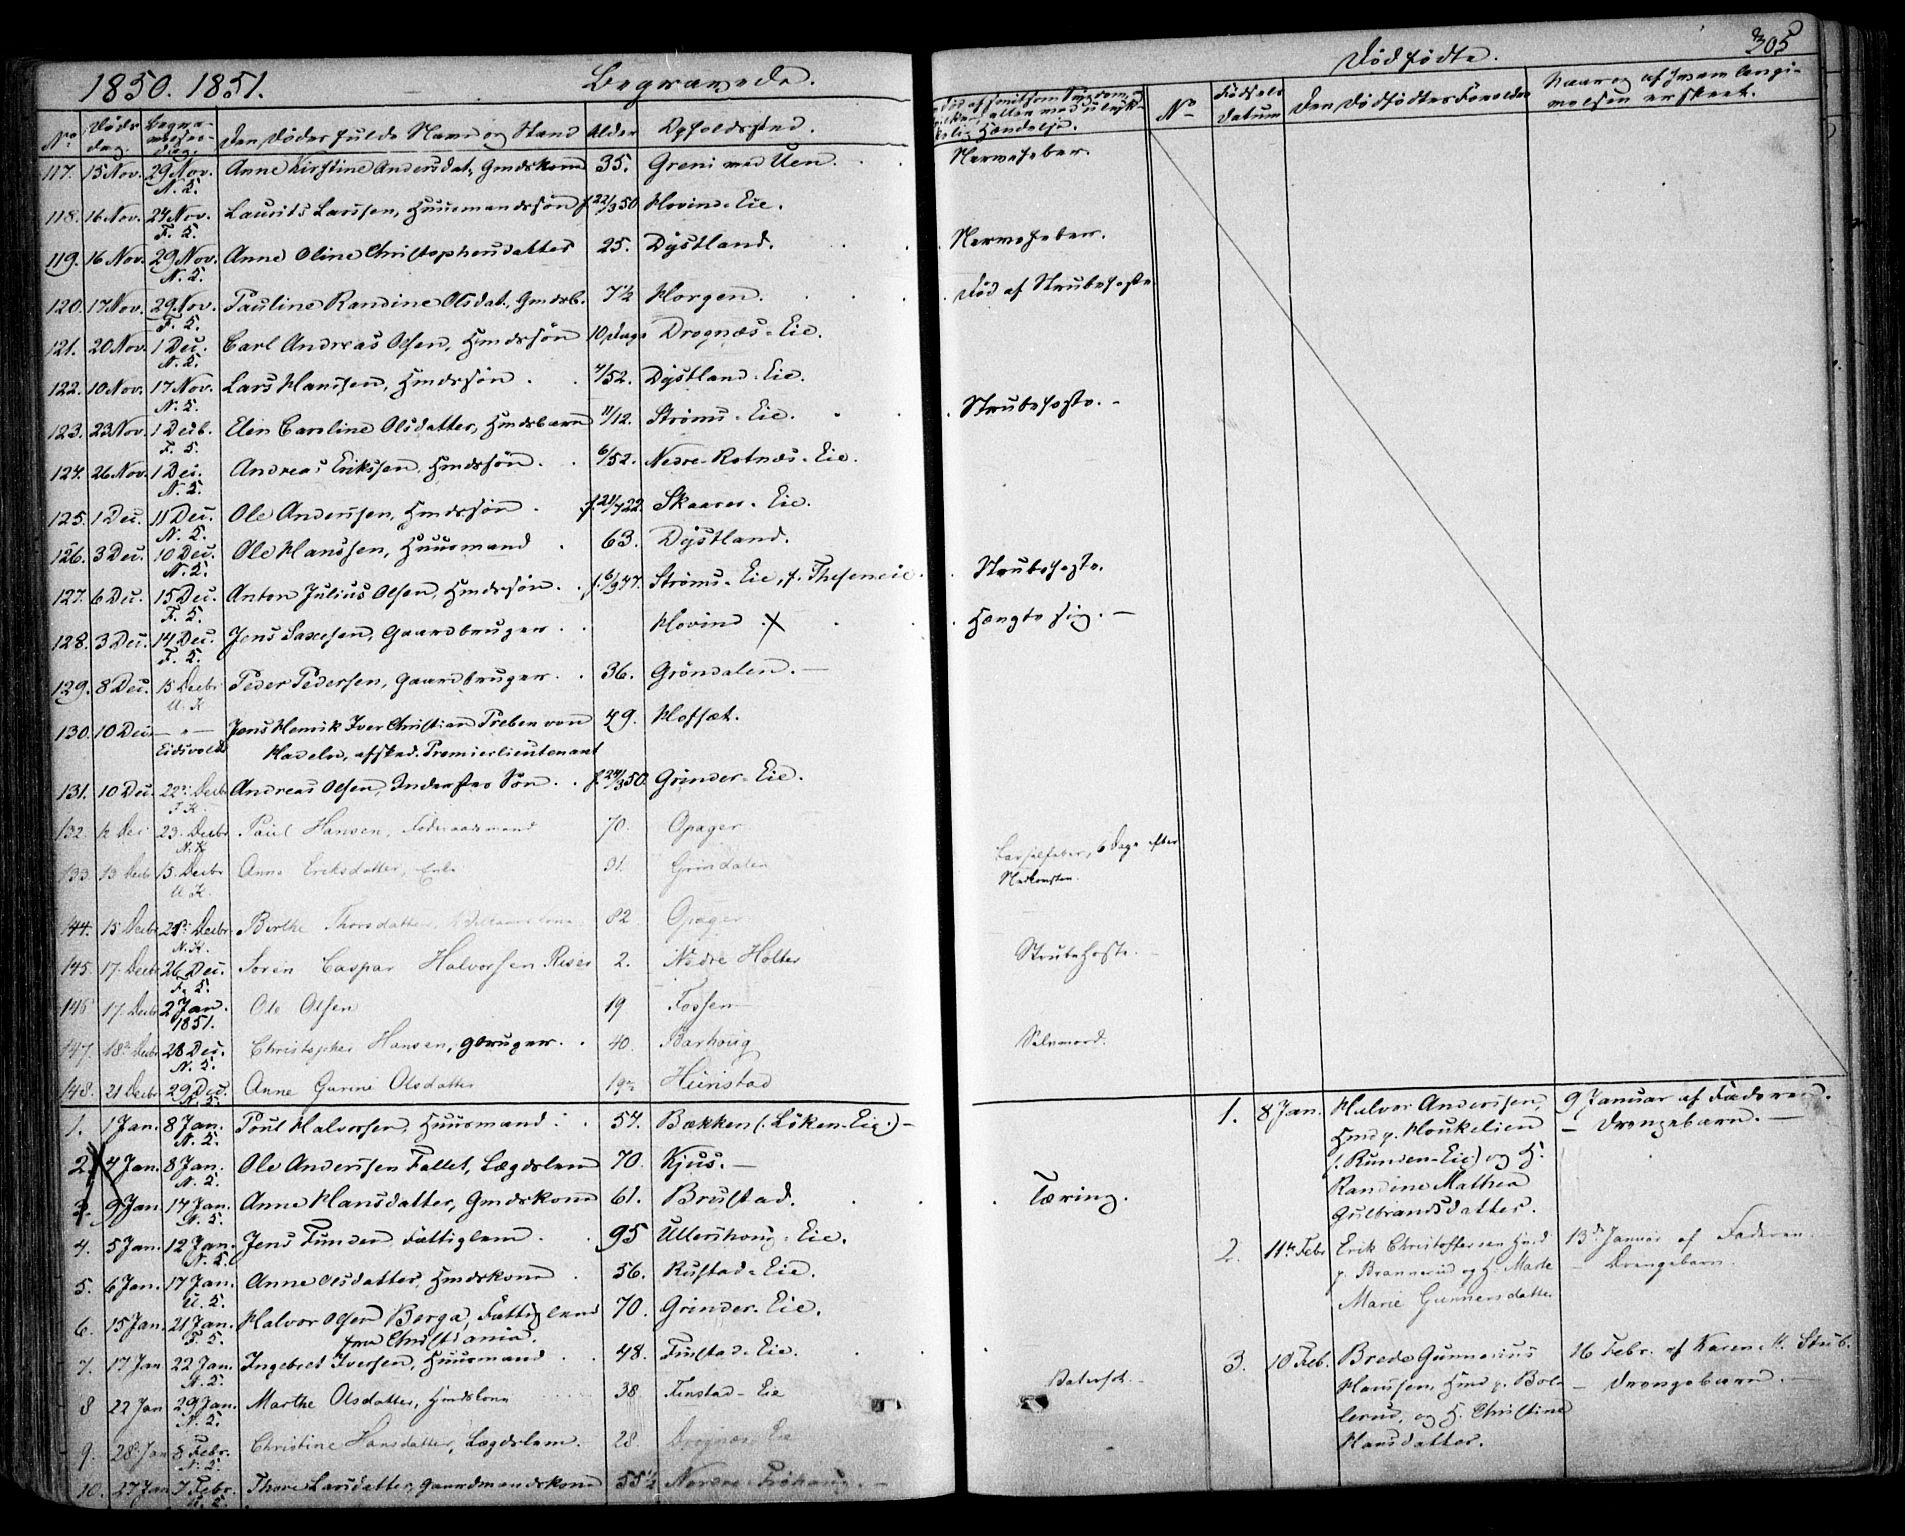 1850. 1851. Begravede.
No Døds dag. Begravelses- dag. Den Dødes fulde Navn og Stand Alder Opholdssted.
117. 15 Nov. 29 Nov. Anne Kirstine Andersdat., Gmdskone 35. Greni med Uen.
N. K.
118. 16 Nov. 24 Nov. Laurits Larssen, Huusmandssøn f 22/3 50 Hovind-Eie.
F. K.
119. 16 Nov. 29 Nov. Anne Oline Christophersdatter 25. Dÿstland.
N. K.
120. 17 Nov. 29 Nov. Pauline Randine Olsdat., Gmdsb. 7½ Horgen.
F. K.
121. 20 Nov. 1 Dec. Carl Andreas Olsen, Hmdssøn 10 Dage Drognæs-Eie.
N. K.
122. 10 Nov. 17 Nov. Lars Hanssen, Hmdssøn. 4/52. Dÿstland-Eie.
N. K.
123. 23 Nov. 1 Decb. Elen Caroline Olsdatter, Hmdsbarn 11/12. Strøms-Eie.
F. K.
124. 26 Nov. 1 Dec. Andreas Erikssen, Hmdssøn. 6/52. Nedre-Rotnæs-Eie.
N. K.
125. 1 Dec. 11 Dec. Ole Anderssen, Hmdssøn. f. 21/4 22. Skaarer-Eie.
N. K.
126. 3 Dec. 10 Dec. Ole Hanssen, Huusmand. 63. Dÿstland.
N. K.
127. 6 Dec. 15 Dec. Anton Julius Olsen, Hmdssøn. f. 6/9 47. Strøms-Eie, f. Theseneie.
F. K.
128. 3 Dec. 14 Dec. Jens Saxesen, Gaardbruger. Hovind X
F. K.
129. 8 Dec. 15 Decbr Peder Pedersen, Gaardbruger. 36. Grøndalen.
U. K
130. 10 Dec — " — Jens Henrik Iver Christian Preben von 49. Hofsæt.
Eidsvold Hadeln, afsked. Premierlieutenant
131. 10 Dec. 22 Decbr Andreas Olsen, Indersters Søn. f. 24/3 50. Grinder-Eie.
F. K.
132. 12 Dec 23. Decbr Paul Hansen, Føderaadsmand 70. Opager
N. K
133 13 Decbr 15. Decbr Anne Eriksdatter, Enke 31. Grindalen
U K.
144. 15 Decbr Decbr. Birthe Thorsdatter, 82 Opager
N. K.
145. 17. Decbr 26 Dec. Søren Caspar Halvorsen Riser 2. Nedre Holter
F. K.
146 17. Decbr 2 Jan. Ole Olsen 19 Fossen
1851.
147. 18 Decbr 28 Dec. Christopher Hansen, Gbruger. 40. Barhoug
N. K.
148. 21 Decbr 29 Dec. Anne Gurine Olsdatter Huristad
N. K.
1. 1 Jan. 8 Jan. Poul Halvorsen, Huusmand. 54. Bækken (: Løken-Eie :) -
N. K.
2. 4 Jan. 8 Jan. Ole Anderssen Fallet, Lægdslem 70. Kjus. —
N. K.
3. 9 Jan 17 Jan. Anne Hansdatter, Gmdskone 61. Brustad.
N. K.
4. 5 Jan. 12 Jan. Jens Funder, Fattiglem. 95 Ullershoug-Eie.
N. K.
5. 6 Jan. 17 Jan. Anne Olsdatter, Hmdskone. 56. Rustad-Eie.
U. K.
6. 15 Jan. 21 Jan. Halvor Olsen Berga, Fattiglem 70. Grinder-Eie.
F. K. fra Christiania.
7. 17 Jan 22 Jan. Ingebret Iversen, Huusmand. 48. Finstad-Eie.
N. K.
8 22 Jan 29 Jan. Marthe Olsdatter, Hmdskone 38. Finstad-Eie
N. K.
9. 28 Jan 8 Febr. Christine Hansdatter, Lægdslem. 28 Drognæs Eie
N. K.
10. 27 Jan 7 Febr. Thore Larsdatter, Gaardmandskone 55½ Nordre Frøhaug. -
Dødfødte. 305
No Fødsels Datum Den Dødfødtes Forældre Naar og af hvem Jordfæstelsen er skeet.
Nervefeber.
Nervefeber.
Død af Strubehoste
Strubehoste. -
Strubehoste.
Hængte sig. —
Barselfeber, 6 Dage efter
Nedkomsten.
Strubehoste.
Selvmord.
1. 8 Jan. Halvor Anderssen, 9 Januar af Faderen.
Hmd p. Houkelien — Drengebarn. —
(: Runden-Eie) og H.
Randine Mathea
Gulbrandsdatter.
Tæring.
2. 11 Febr Erik Christoffersen Hmd 13 Januar af Faderen
p. Brannerud og H. Marte — Drengebarn.
Marie Gunnersdatter
3. 10 Feb. Brede Gunnerius 16 Febr. af Karen K. Stub.
Hanssen, Hmd p. Bol- — Drengebarn. —
lerud, og H. Christine
Hansdatter.
Vatersot. -